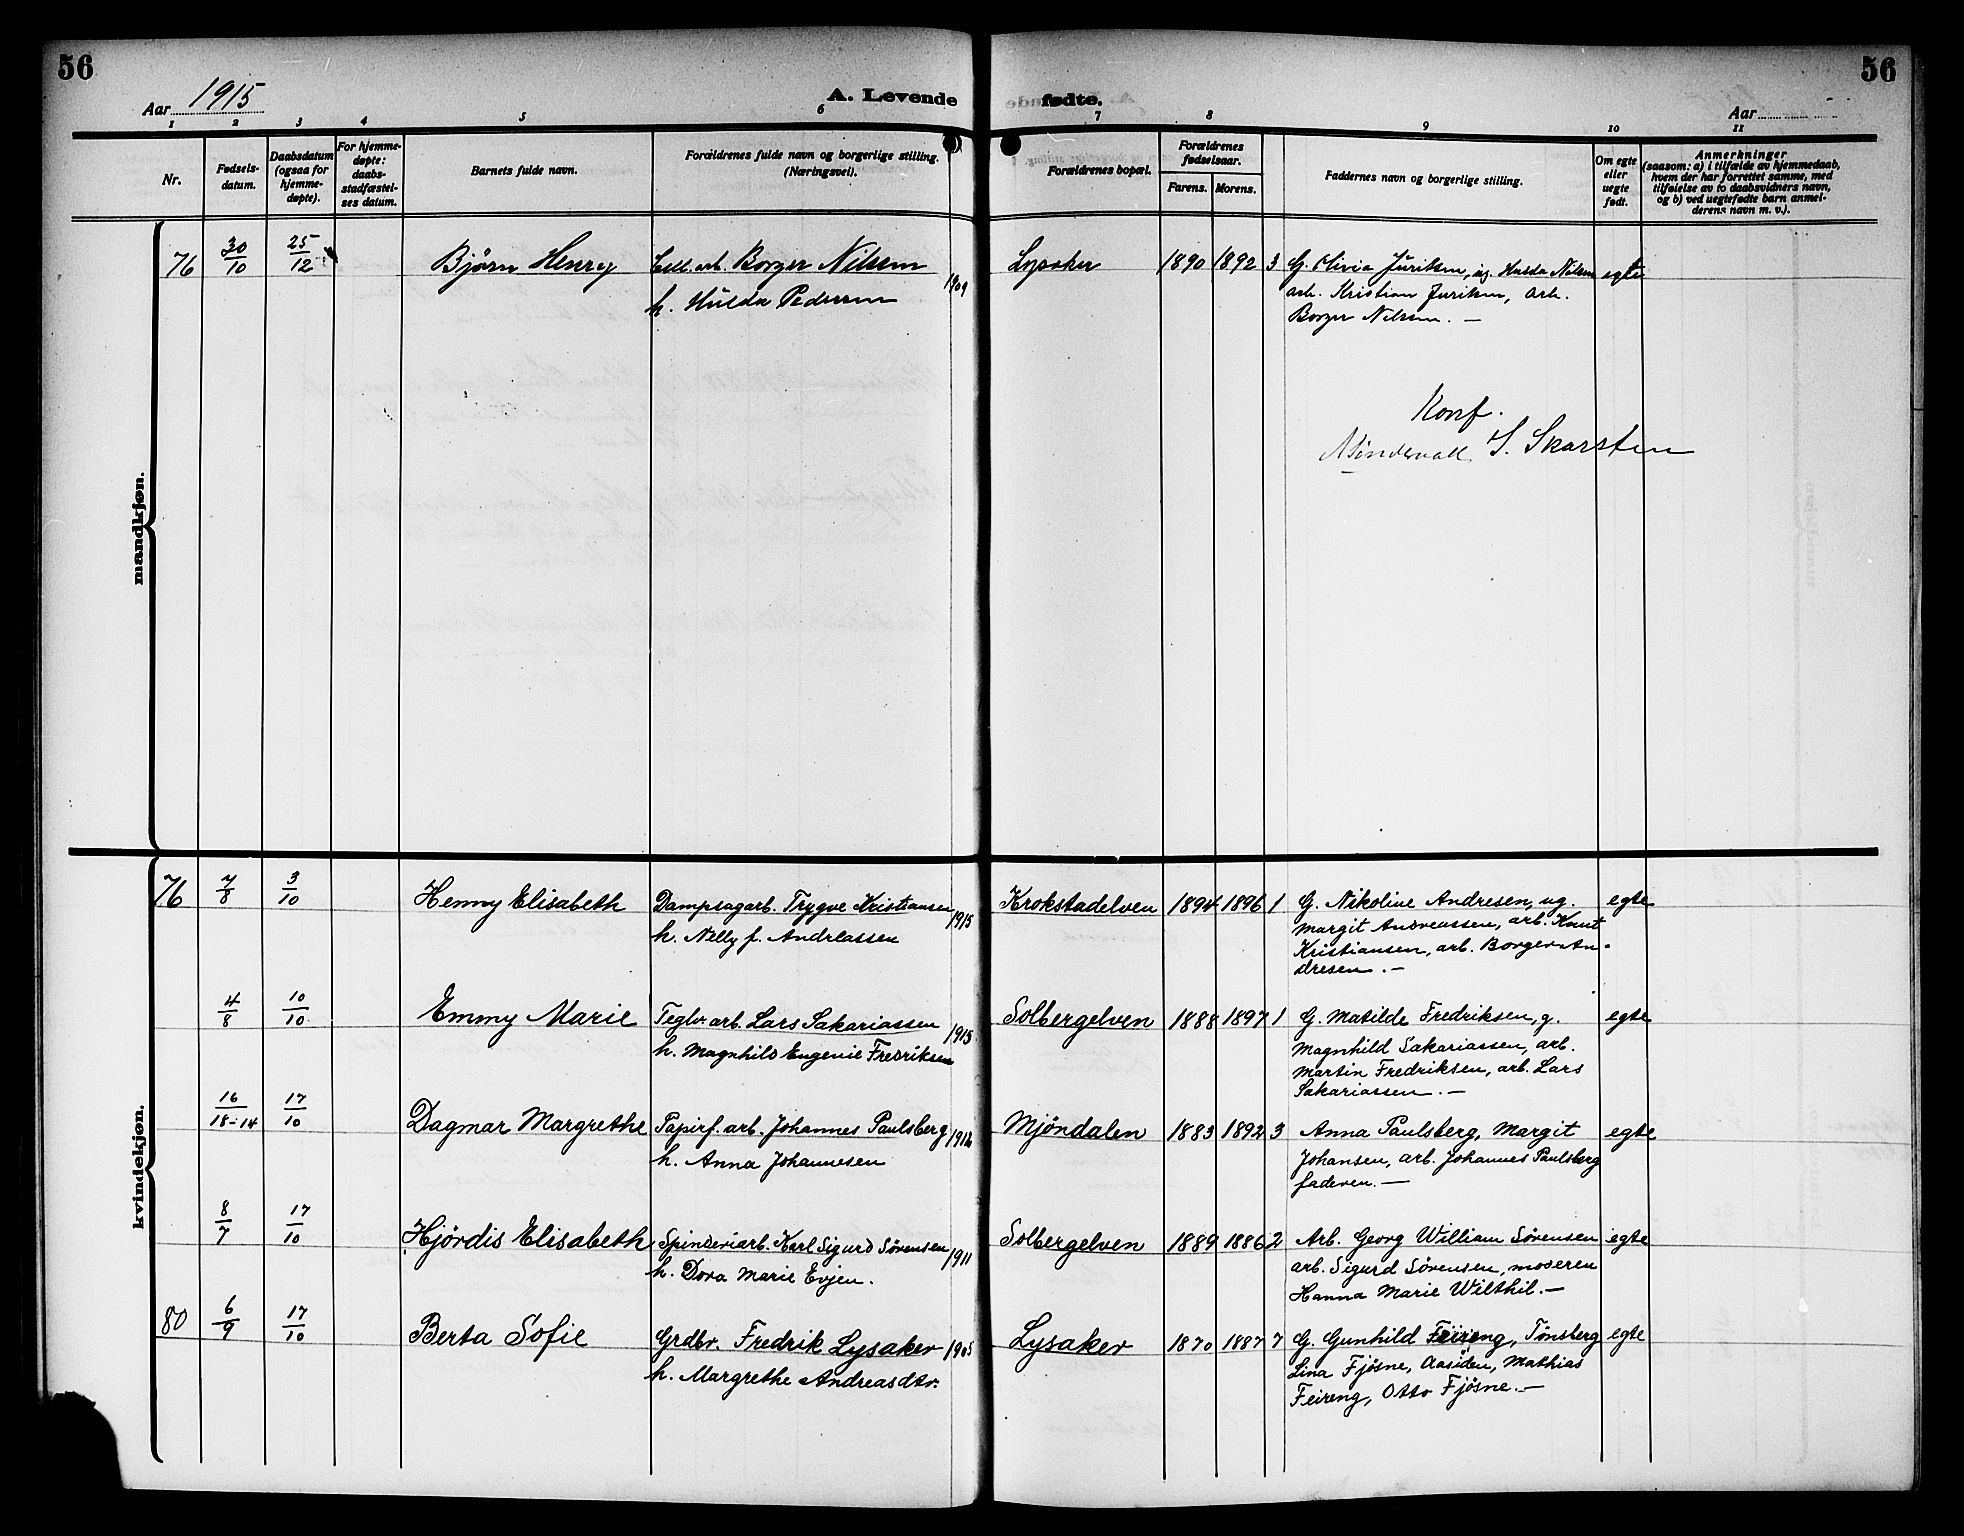 56
56
Aar 1915
A. Levende
fødte.
Aar
1 2 3 4 5 6 7 8 9 10 11
Nr.
Fødsels-
datum.
Daabsdatum
(ogsaa for
hjemme-
døpte).
For hjemme-
døpte:
daabs-
stadfæstel-
ses datum.
Barnets fulde navn.
Forældrenes fulde navn og borgerlige stilling.
(Næringsvei).
Forældrenes bopæl.
Forældrenes
fødselsaar.
Farens. Morens.
Faddernes navn og borgerlige stilling.
Om egte
eller
uegte
født.
Anmerkninger
(saasom: a) i tilfælde av hjemmedaab,
hvem der har forrettet samme, med
tilføielse av to daabsvidners navn,
og b) ved uegtefødte barn anmel-
derens navn m. v.).
mandkjøn.
76 30/10 25/12 Bjørn Henry Cell. arb. Borger Nilsen 1909 Lysaker 1890 1892 3 G. Olivia Juriksen, ug. Hulda Nilsen egte
h. Hulda Pedersen
arb. Kristian Juriksen, arb.
Borger Nilsen. —
Konf.
S. Skarsten
kvindekjøn.
76 7/8 3/10 Henny Elisabeth Dampsagarb. Trygve Kristiansen 1915 Krokstadelven 1894 1896 1 G. Nikoline Andresen, ug. egte
h. Nelly f. Andreassen
Margit Andreassen, arb. Knut
Kristiansen, arb. Borger An-
dresen. —
4/8 10/10 Emmy Marie Teglv. arb. Lars Sakariassen 1915 Solbergelven 1888 1897 1 G. Matilde Fredriksen, g. egte
h. Magnhild Eugenie Fredriksen
Magnhild Sakariassen, arb.
Martin Fredriksen, arb. Lars
Sakariassen. —
16/18-14 17/10 Dagmar Margrethe Papirf. arb. Johannes Paulsberg 1912 Mjöndalen 1883 1892 3 Anna Paulsberg, Margit egte
h. Anna Johannesen
Johansen, arb. Johannes Paulsberg
faderen. —
8/7 17/10 Hjördis Elisabeth Spinderiarb. Karl Sigurd Sørensen 1911 Solbergelven 1889 1886 2 Arb. Georg William Sørensen egte
h. Dora Marie Evjen.
arb. Sigurd Sørensen, moderen
Hanna Marie Wilthil. —
80 6/9 17/10 Berta Sofie Grdbr. Fredrik Lysaker 1905 Lysaker 1870 1887 7 G. Gunhild Feireng, Tønsberg egte
h. Margrethe Andreasdtr.
Lina Fjösne, Aasiden, Mathias
Feireng, Otto Fjösne. —